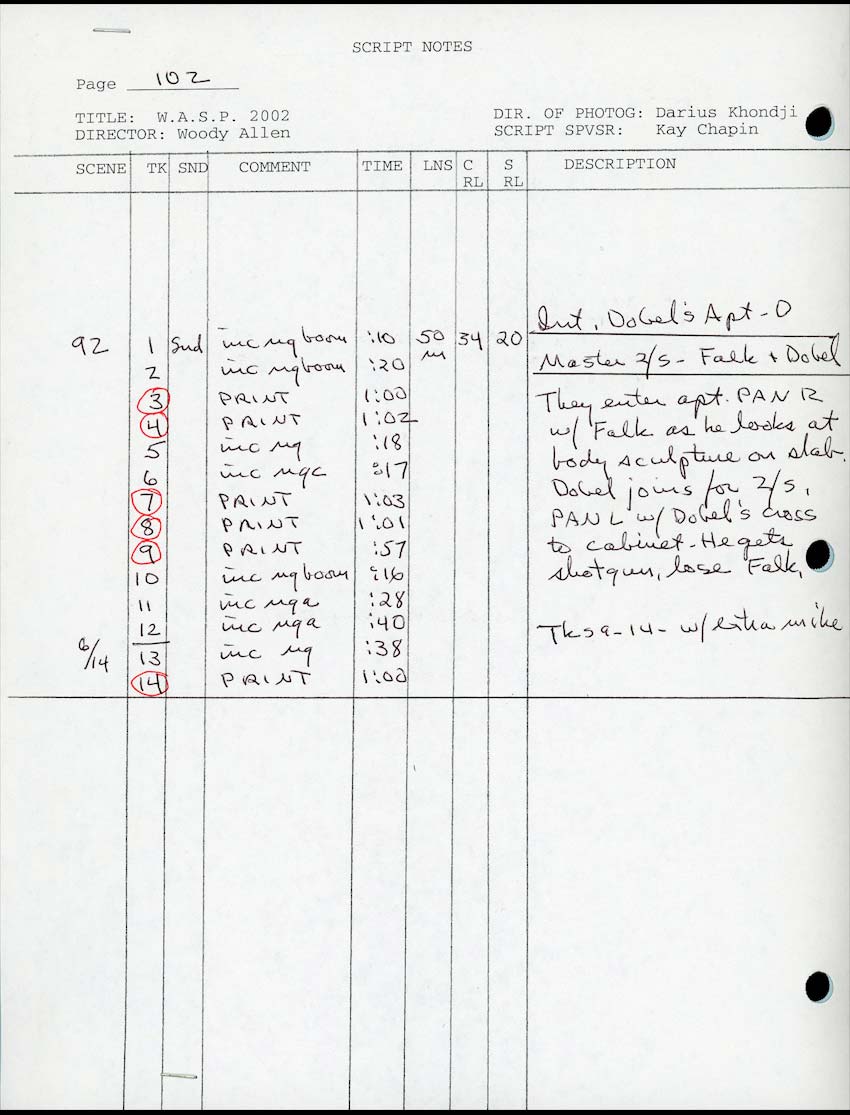 SCRIPT NOTES
Page 102
TITLE: W.A.S.P. 2002 DIR. OF PHOTOG: Darius Khondji
DIRECTOR: Woody Allen SCRIPT SPVSR: Kay Chapin
SCENE TK SND COMMENT TIME LNS C RL S RL DESCRIPTION
Int. Dobel's Apt - D
92 1 Snd inc ng boom :10 50 m 34 20
Master 2/S - Falk + Dobel
2 inc ng boom :20
3 PRINT 1:00 They enter apt. PAN R
4 PRINT 1:02 w/ Falk as he looks at
5 inc ng :18 body sculpture on slab.
6 inc ngc :17 Dobel joins for 2/S,
7 PRINT 1:03 PAN L w/ Dobel's cross
8 PRINT 1:01 to cabinet - He gets
9 PRINT :57 shotgun, lose Falk.
10 inc ng boom :16
11 inc nga :28
12 inc nga :40 Tks 9-14 - w/ extra mike
6/14 13 inc ng :38
14 PRINT 1:00